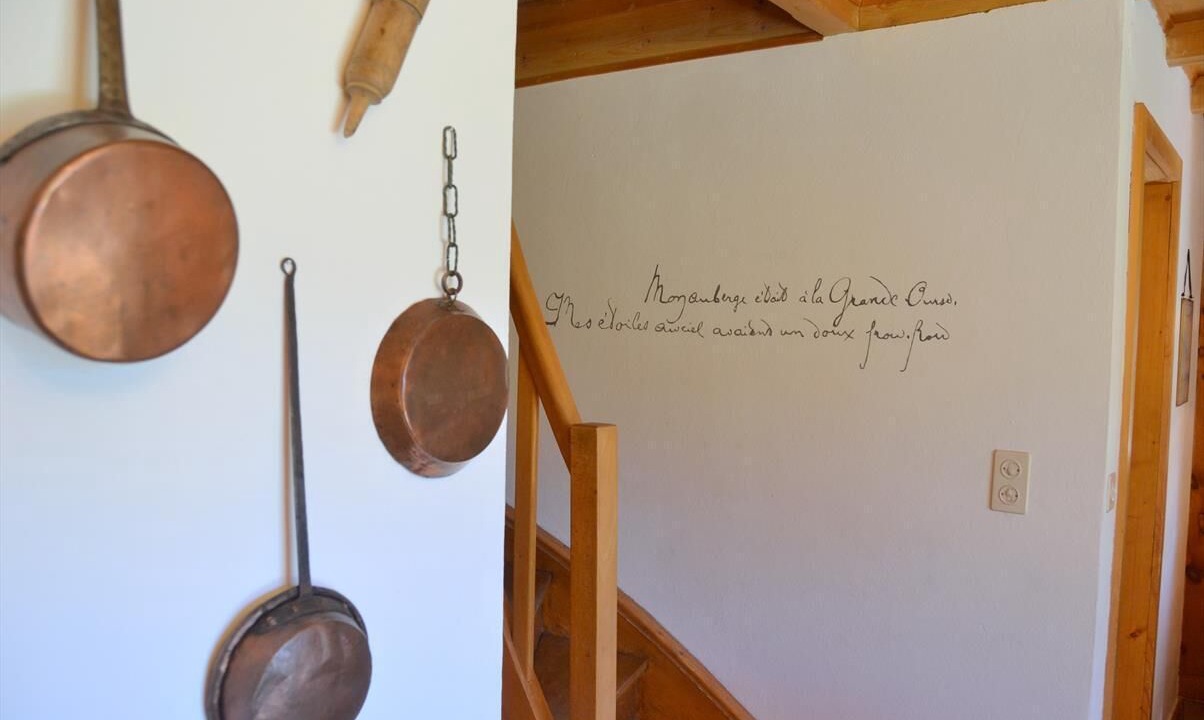 Mon auberge était à la Grande Ourse.
Mes étoiles au ciel avaient un doux frou-frou